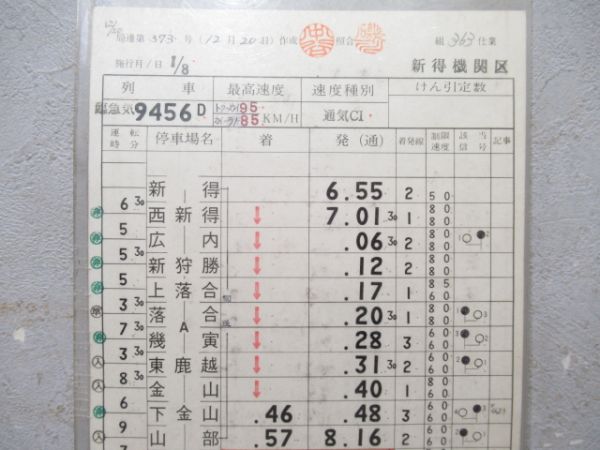 12/20 局達第 373 号 (12月20日) 作成 照合 組 363 仕業
施行月日 1/8 新得機関区
列車 最高速度 速度種別 けん引定数
臨急気 9456D 95 85 KM/H 通気CI
運転時分 停車場名 着 発(通) 着発線 制限速度 該当信号 記事
新得 6.55 2 50
6 30
西新得 ↓ 7.01 30 1 80 80
5
広内 ↓ .06 30 2 80 80
5 30
新狩勝 ↓ .12 2 80 80
5
上落合 ↓ .17 1 85 60
3 30
落合 ↓ .20 30 1 80 80
7 30
幾寅 ↓ .28 3 60 60
3 30
東鹿越 ↓ .31 30 2 60 60
8 30
金山 ↓ .40 1 80 60
6
下金山 .46 .48 3 60 60
9
山部 .57 8.16 2 60 60